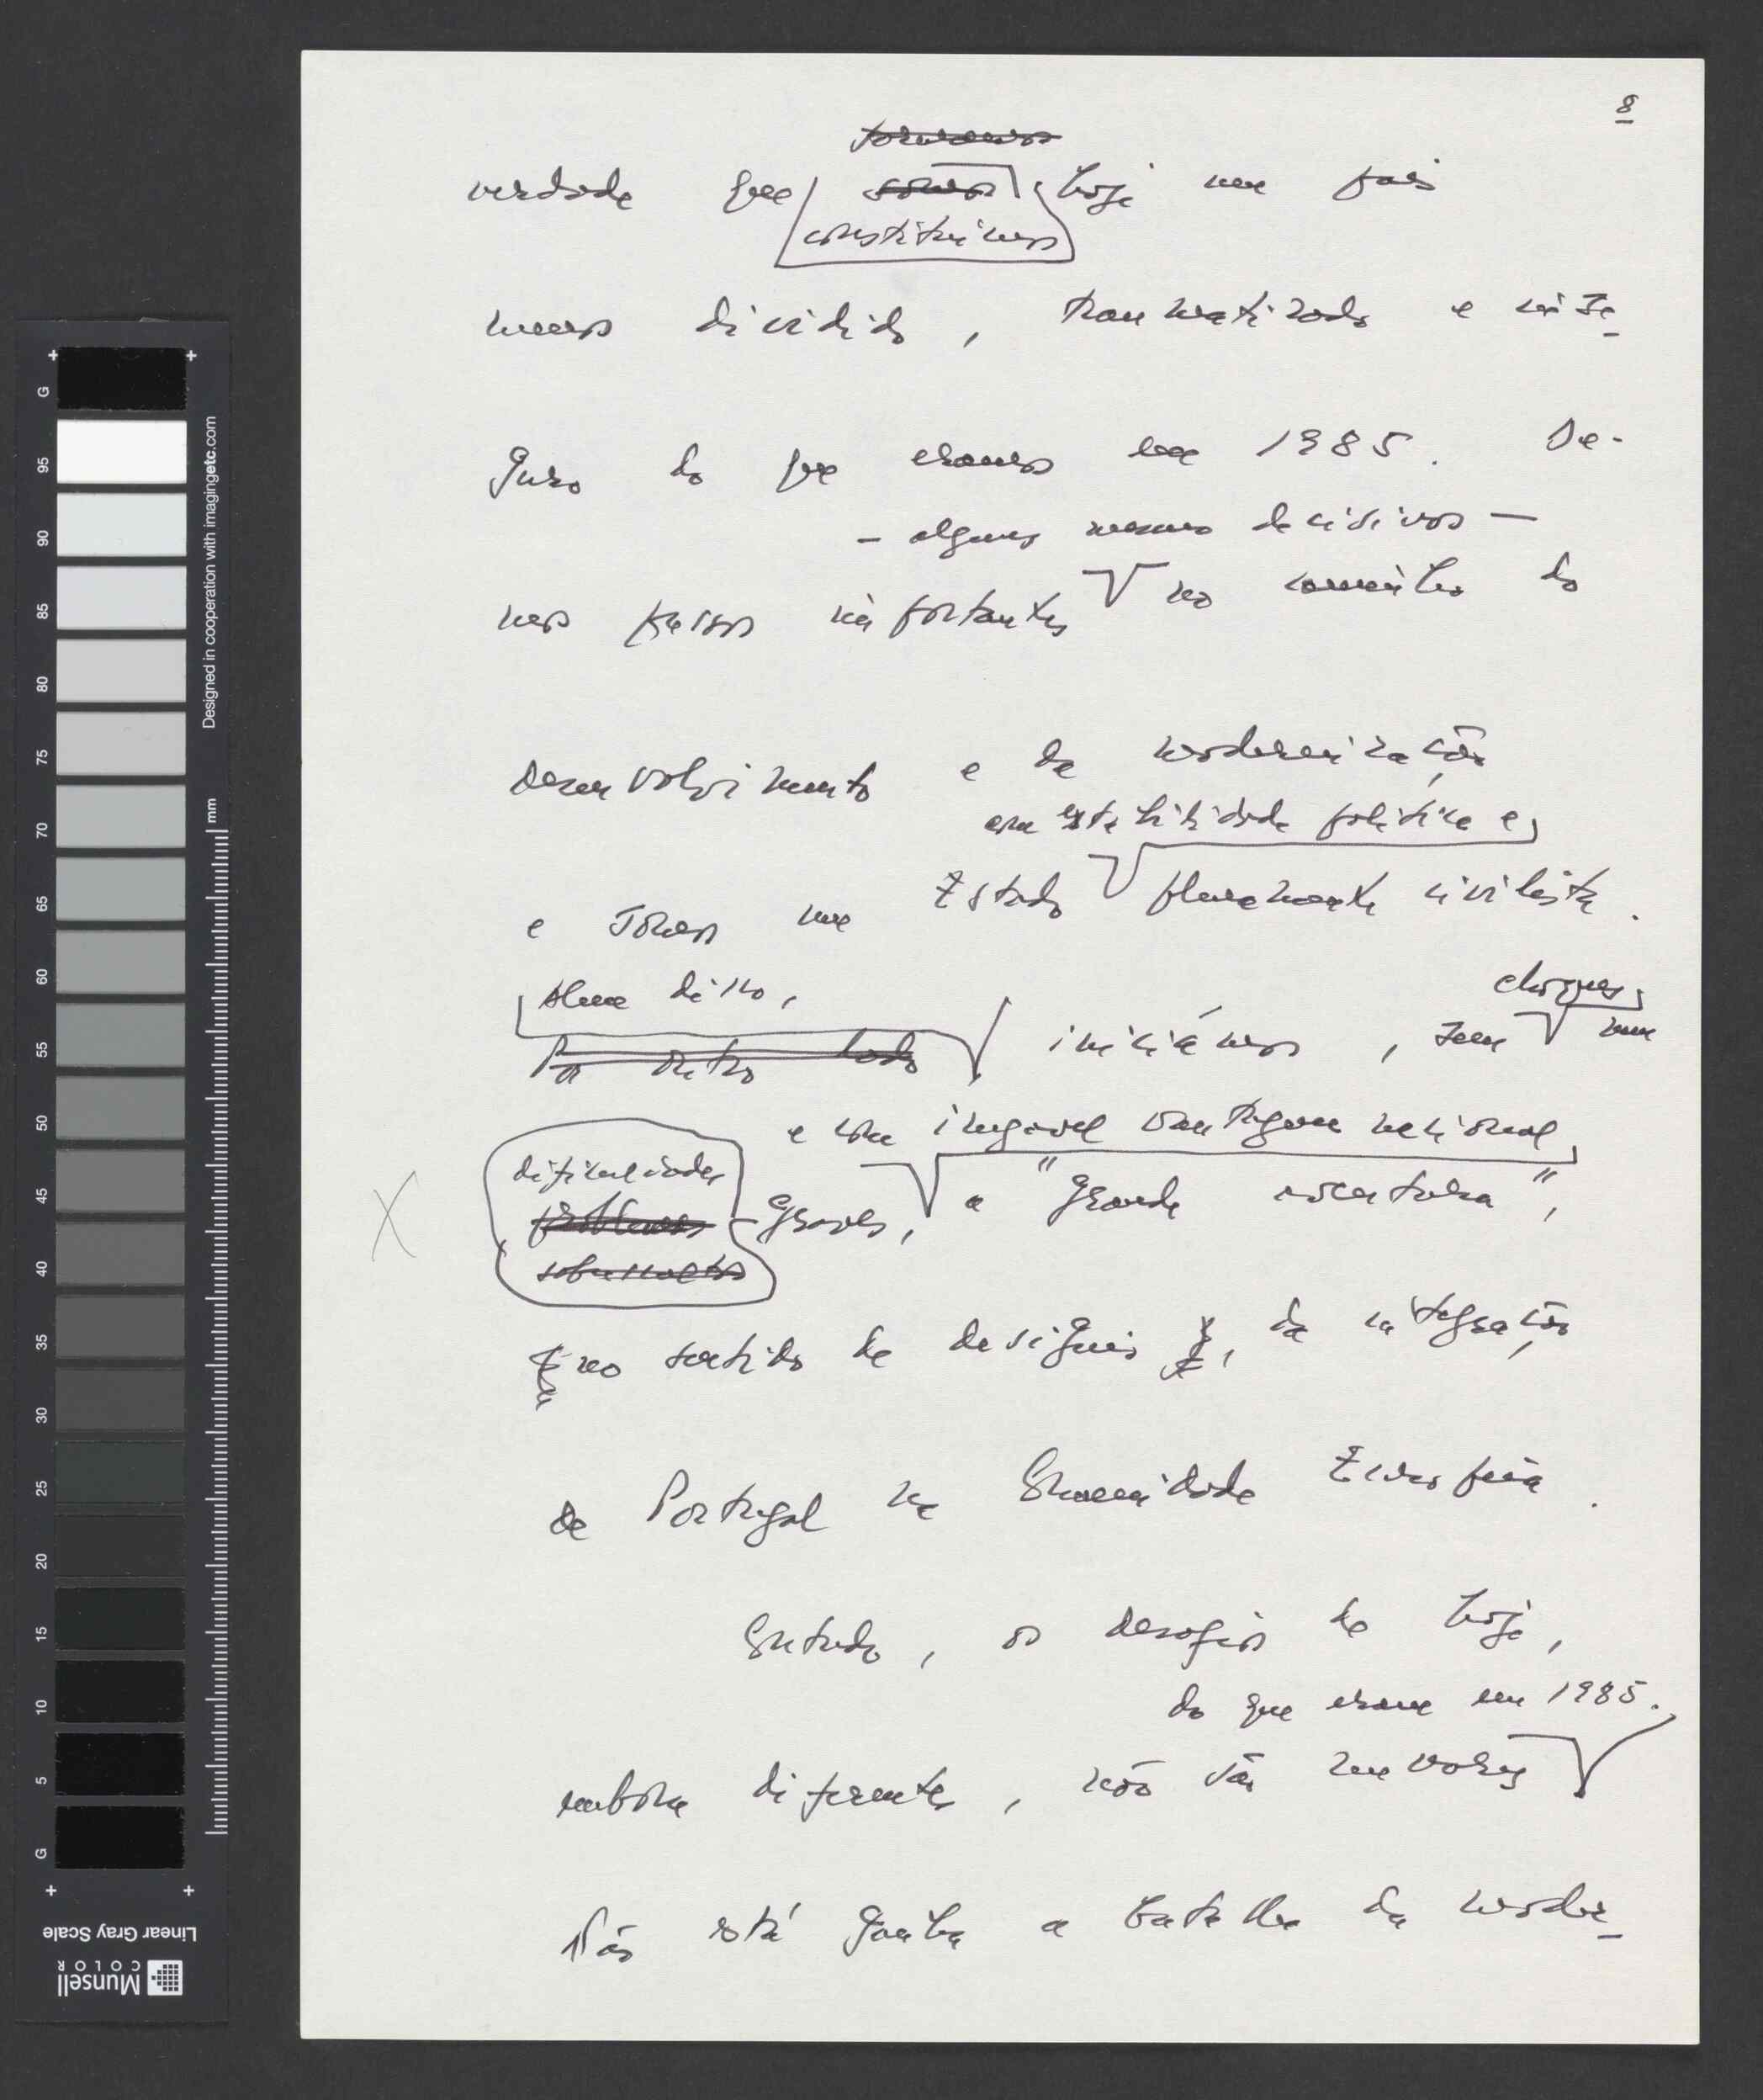 8
tornamos
verdade que somos hoje um país
constituimos
menos dividido, traumatizado e inse-
guro do que eramos em 1985. De-
— alguns mesmo decisivos —
mos passos importantes no caminho do
desenvolvimento e da modernização
com estabilidade política e
e somos um Estado plenamente civilista.
Alem disso, choques,
Por outro lado iniciámos, sem nem
e com inegavel vantagem nacional,
dificuldades
problemas graves, a "grande aventura",
sobressaltos
no sentido de desígnio, da integração
de Portugal na Comunidade Europeia.
Contudo, os desafios de hoje,
do que eram em 1985.
embora diferentes, não são menores
Não está ganha a batalha da moder-
G 95 90 85 80 75 70 65 60 55 50 45 40 35 30 25 20 15 10 5 G
mm
Designed in cooperation with imagingetc.com
Linear Gray Scale
Munsell
COLOR